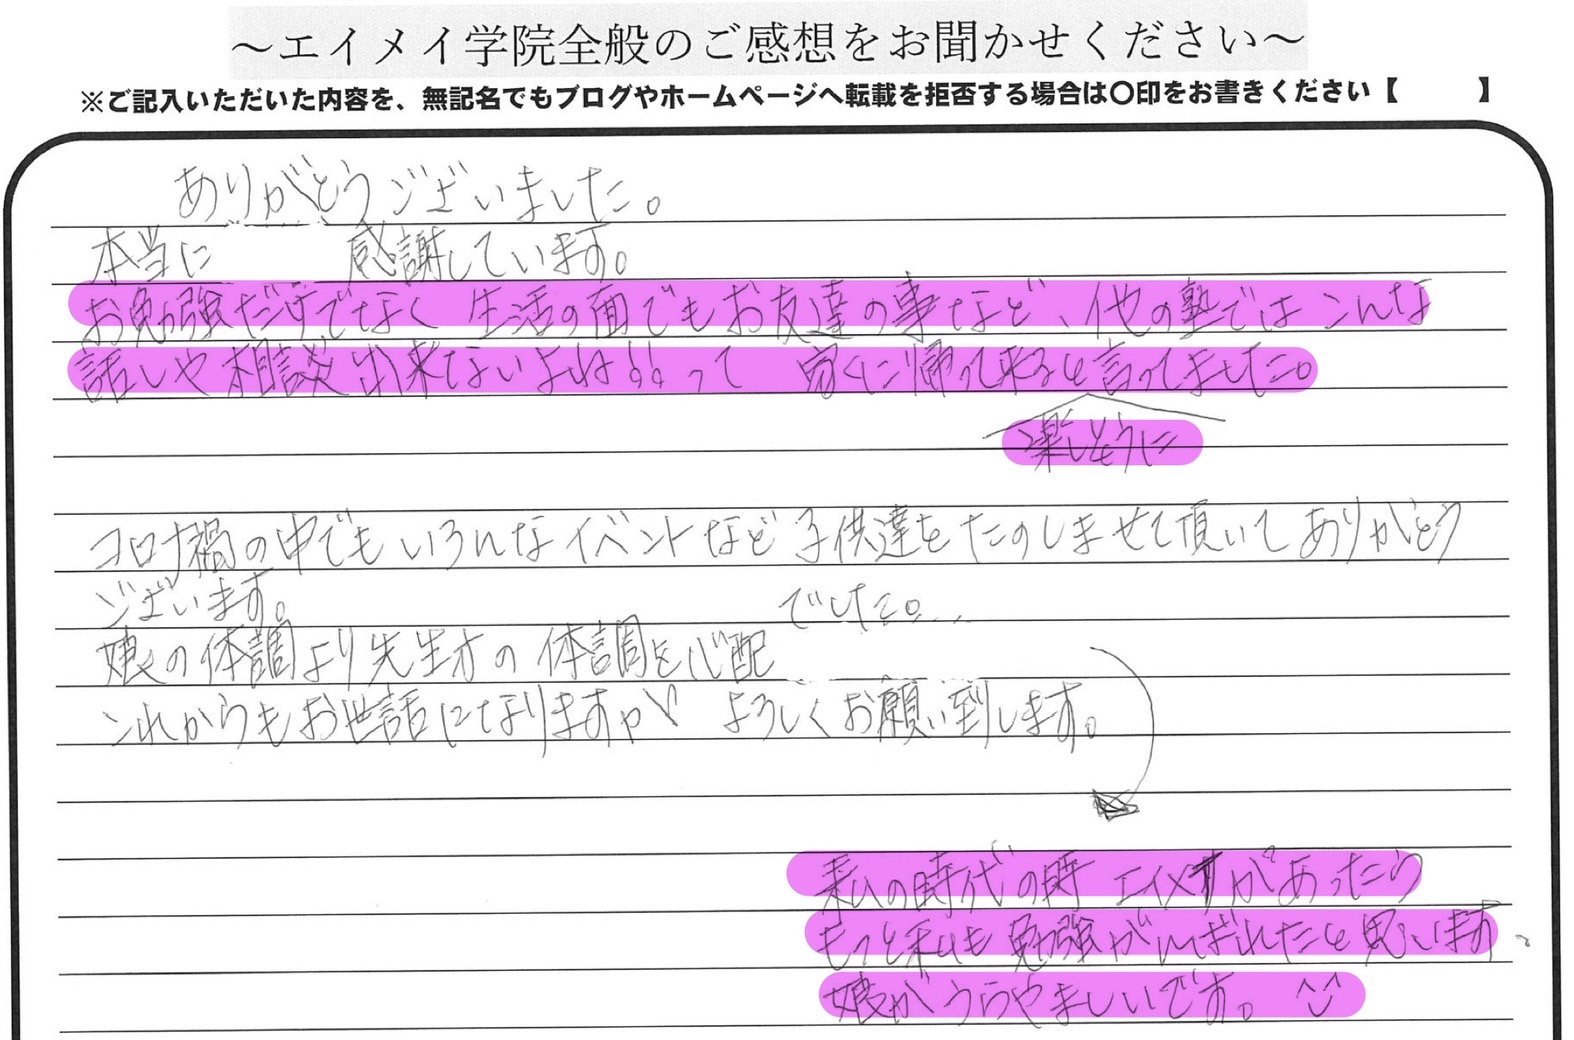 ～エイメイ学院全般のご感想をお聞かせください～
※ご記入いただいた内容を、無記名でもブログやホームページへ転載を拒否する場合は〇印をお書きください【　　】
ありがとうございました。
本当に　感謝しています。
お勉強だけでなく 生活の面でもお友達の事など、他の塾ではこんな
話しや相談出来ないよね!!って 家に帰って来ると言ってました。
楽しそうに
コロナ禍の中でもいろんなイベントなど子供達をたのしませて頂いてありがとう
ございます。
娘の体調より先生方の体調を心配 でした。
これからもお世話になりますが よろしくお願い到します。
私の時代の時 エイメイがあったら
もっと私も勉強がんばれたと思います。
娘がうらやましいです。^^